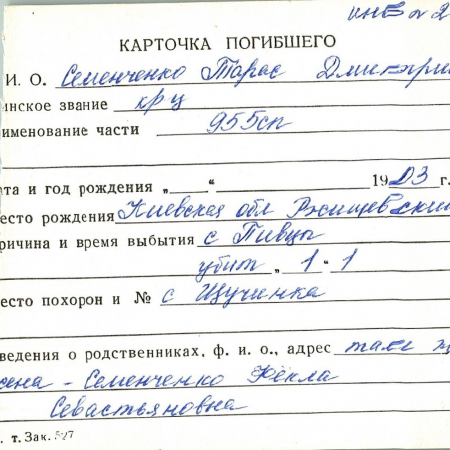 инв № 2
КАРТОЧКА ПОГИБШЕГО
И. О. Семенченко Тарас Дмитри
инское звание кр-ц
именование части 955сп
ата и год рождения „ “ 1903 г.
есто рождения Киевская обл Ржищевский
ричина и время выбытия с Пивцы
убит „ 1 - 1
есто похорон и № с Щученка
ведения о родственниках, ф. и о., адрес там ж
жена - Семенченко Фёкла
Севастьяновна
. т. Зак. 527